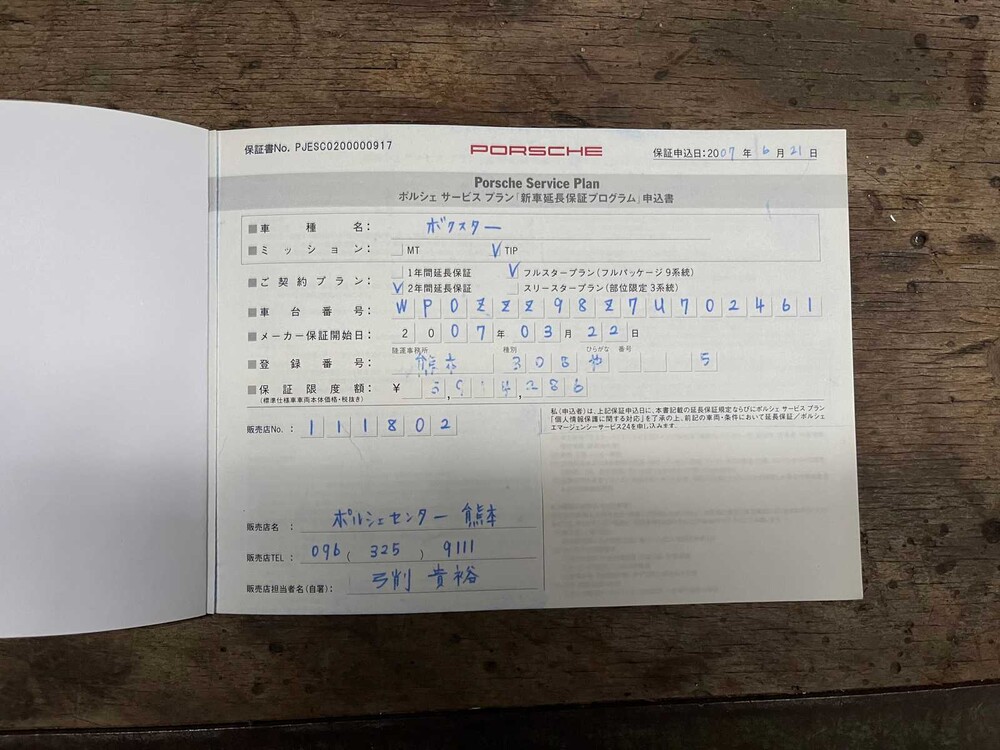 保証書No. PJESC0200000917 PORSCHE 保証申込日:2007 年 6 月 21 日
Porsche Service Plan
ポルシェ サービス プラン「新車延長保証プログラム」申込書
■車種名: ボクスター
■ミッション: MT TIP
■ご契約プラン: 1年間延長保証 フルスタープラン(フルパッケージ 9系統)
2年間延長保証 スリースタープラン(部位限定 3系統)
■車台番号: WP0ZZZ98Z7U702461
■メーカー保証開始日: 2007 年 03 月 22 日
陸運事務所 種別 ひらがな 番号
■登録番号: 熊本 308 や 5
■保証限度額: ¥
(標準仕様車車両本体価格・税抜き)
私(申込者)は、上記保証申込日に、本書記載の延長保証規定ならびにポルシェ サービス プラン
「個人情報保護に関する対応」を了承の上、前記の車両・条件において延長保証/ポルシェ
エマージェンシーサービス24を申し込みます。
販売店No.: 111802
販売店名: ポルシェセンター 熊本
販売店TEL: 096 ( 325 ) 9111
販売店担当者名(自署): 弓削 貴裕